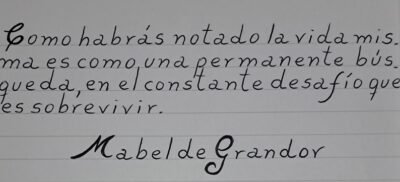 Como habrás notado la vida mis.
ma es como una permanente bús.
queda, en el constante desafío que
es sobrevivir.
Mabel de Grandor